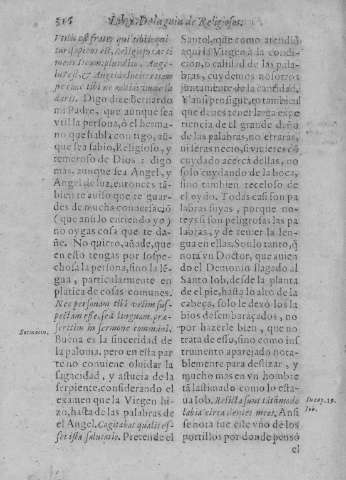 516 Lib. y. De la guia de Religiosos.
Vtrũ est frater qui tibi loqui
tur sapiens est, Religiosus ac ti
mens Deum plurimũ, Ange-
lus est, & Angelus lucis etiam
tunc tibi ne nolis
daris. Digo dize Bernardo
mi Padre, que aunque sea
vtil la persona, ò el herma-
no que habla contigo, aũ
que sea sabio, Religioso, y
temeroso de Dios: digo
mas, aunque sea Angel, y
Angel de luz, entonces tã-
bien te auiso que te guar-
des de mucha conuersaciõ
(que ansi lo entiendo yo)
no oygas cosa que te da-
ñe. No quiero, añade, que
en esto tengas por sospe-
chosa la persona, sino la lẽ-
gua, particularmente en
platica de cosas comunes.
Nec personam tibi velim sus-
pectam esse, sed linguam, præ-
sertim in sermone communi.
Buena es la sinceridad de
la paloma, pero en esta par
te no conuiene oluidar la
sagacidad, y astucia de la
serpiente, considerando el
examen que la Virgen hi-
zo, hasta de las palabras de
el Angel. Cogitabat qualis es-
set ista salutatio. Pretende el
Santo, que como atendiã
aqui la Virgen à la condi-
cion, o calidad de las pala-
bras, cuydemos nosotros
juntamente de la cantidad.
Y ansi prosigue, co tambiẽ al
que deueis tener larga expe
riencia de el grande daño
de las palabras, no estraras,
ni seras necio, si vuieres cõ
cuydado acerca dellas, no
solo cuydando de la boca,
sino tambien receloso de
el oydo. Todas casi son pa
labras suyas, porque no-
teys si son peligrosas las pa
labras, y de tener la len-
gua en ellas. Solo tanto, q̃
nota vn Doctor, que auiẽ
do el Demonio llagado al
Santo Iob, desde la planta
de el pie, hasta lo alto de la
cabeça, solo le dexò los la
bios desembaraçados, no
por hazerle bien, que no
trata de esso, sino como ins
trumento aparejado nota-
blemente para deslizar, y
mucho mas en vn hombre
tã lastimado como lo esta-
ua Iob. Relicta sunt tãtũmodo
labia circa dentes meos. Ansi
se nota fue este vno de los
portillos por donde pensò
el
Sermocin.
Iob.
19.